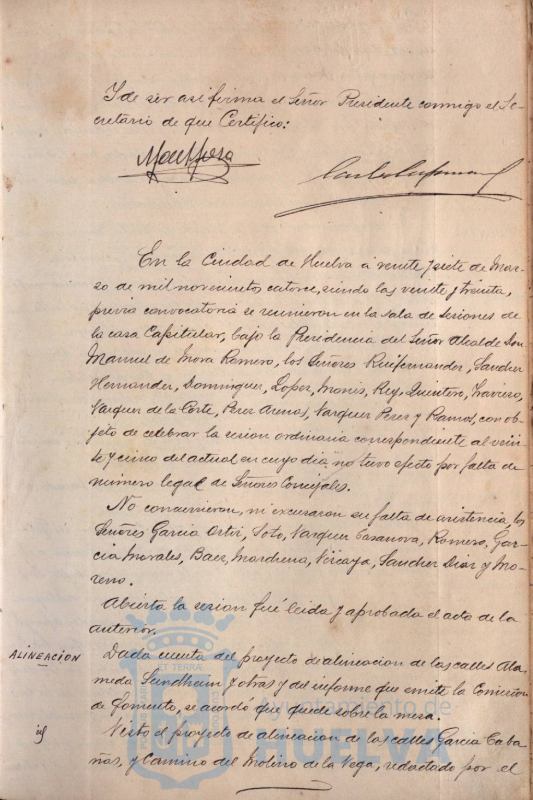 Y de ser asi firma el Señor Presidente conmigo el Se-
cretario de que Certifico:
En la Ciudad de Huelva á veinte y siete de Mar-
zo de mil novecientos catorce, siendo las veinte y treinta,
previa convocatoria se reunieron en la sala de sesiones de
la casa Capitular, bajo la Presidencia del Señor Alcalde Don
Manuel de Mora Romero, los Señores Ruifernandez, Sanchez
Hernandez, Dominguez, Lopez, Monis, Rey, Quintero, Travieso,
Vazquez de la Corte, Perez Arenas, Vazquez Perez y Ramos, con ob-
jeto de celebrar la sesion ordinaria correspondiente al vein-
te y cinco del actual en cuyo dia no tuvo efecto por falta de
número legal de Señores Concejales.
No concurrieron, ni excusaron su falta de asistencia, los
Señores Garcia Ortiz, Soto, Vazquez Casanova, Romero, Gar-
cia Morales, Baez, Marchena, Vizcaya, Sanchez Diaz y Mo-
reno.
Abierta la sesion fué leida y aprobada el acta de la
anterior.
ALINEACION
Dada cuenta del proyecto de alineacion de las calles Ala-
meda Sundheim y otras y del informe que emite la Comision
de Fomento, se acordó que quede sobre la mesa.
id
Visto el proyecto de alineacion de las calles Garcia Caba-
ñas, y Camino del Molino de la Vega, redactado por el
Ayuntamiento de
HUELVA